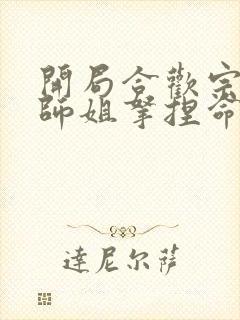 開局合歡宗
師姐拏捏命
達尼尔萨